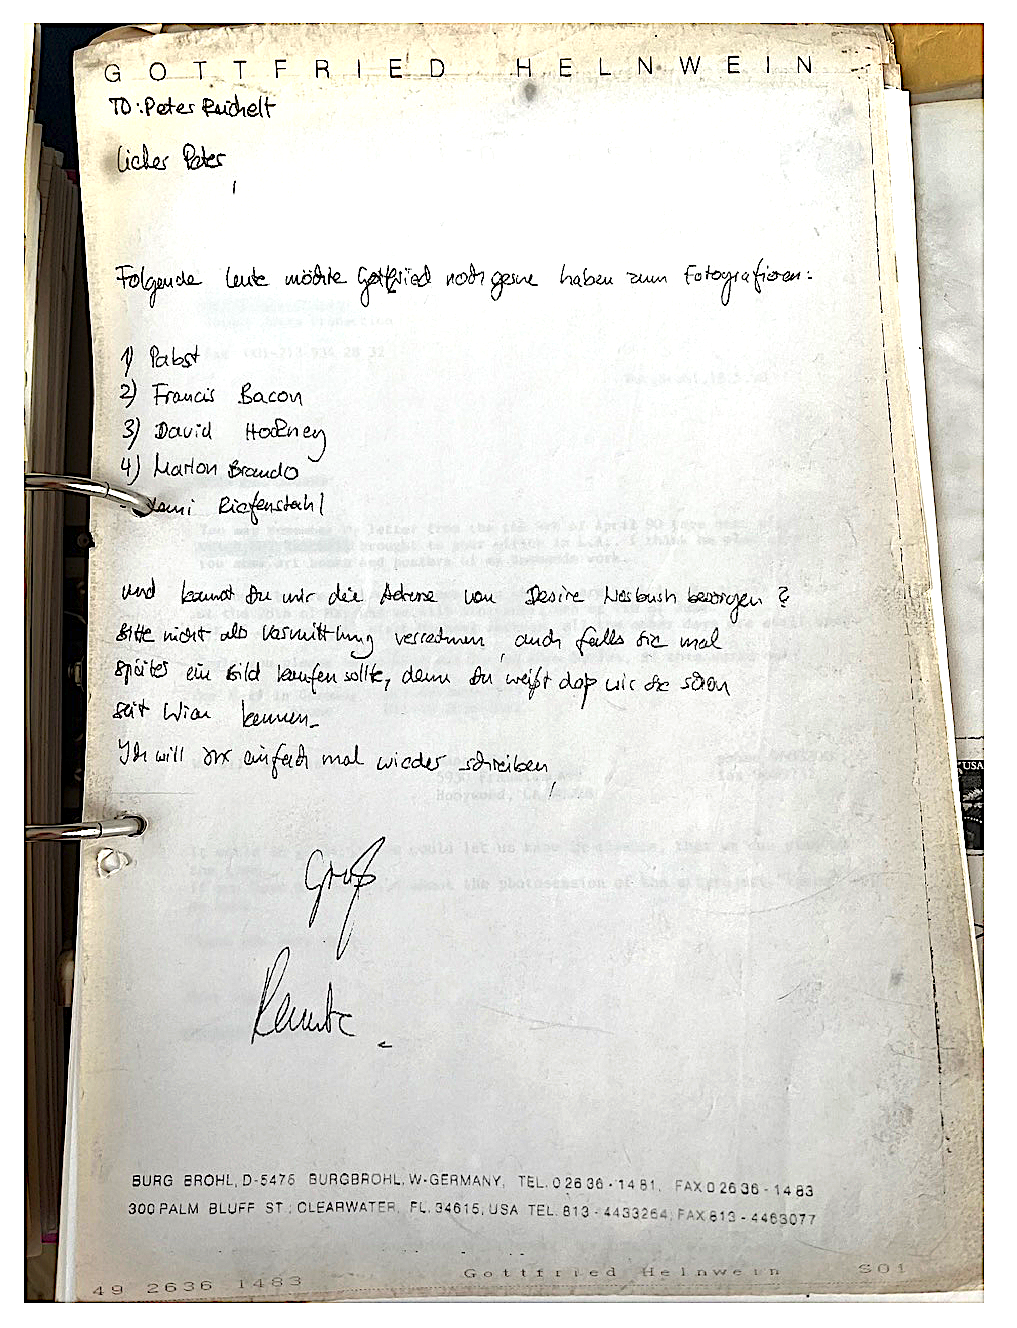 GOTTFRIED HELNWEIN
TO: Peter Reichelt
lieber Peter,
Folgende Leute möchte Gottfried noch gerne haben zum Fotografieren:
1) Pabst
2) Francis Bacon
3) David Hockney
4) Marlon Brando
Leni Riefenstahl
und kannst Du mir die Adresse von Desire Nosbusch besorgen?
Bitte nicht als Vermittlung verrechnen, auch falls sie mal
später ein Bild kaufen sollte, denn Du weißt daß wir sie schon
seit Wien kennen.
Ich will ihr einfach mal wieder schreiben,
Gruß
Renate
BURG BROHL, D-5475 BURGBROHL, W-GERMANY, TEL. 02636-1481, FAX 02636-1483
300 PALM BLUFF ST., CLEARWATER, FL. 34615, USA TEL. 813-4433264, FAX 813-4463077
49 2636 1483 Gottfried Helnwein S01
USA